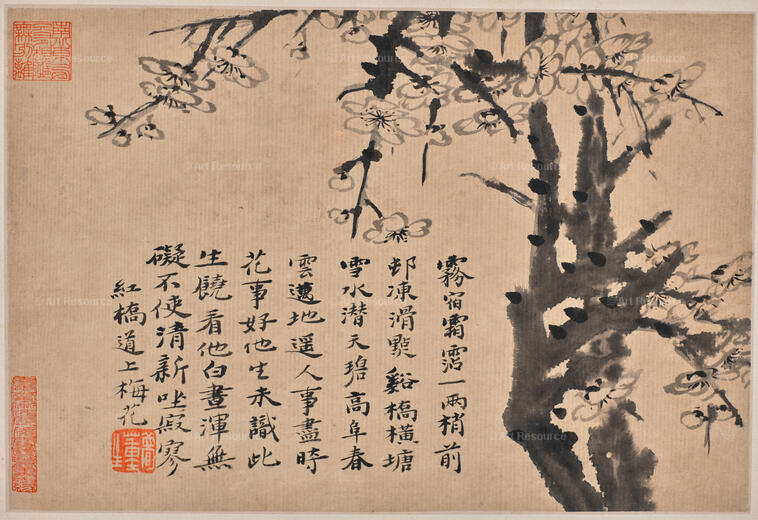 霧宿霜霑一兩梢前
邨凍滑點谿橋橫塘
雪水潛天碧高阜春
雲邁地遥人事盡時
花事好他生未識此
生饒看他白晝渾無
礙不使清新坐寂寥
紅橋道上梅花
Art Resource